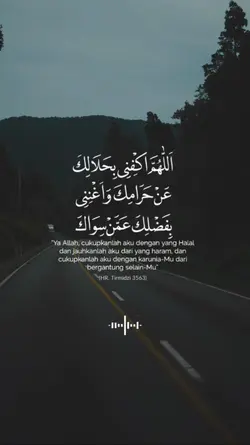 اَللّٰهُمَّ اكْفِنِي بِحَلَالِكَ
عَنْ حَرَامِكَ وَاَغْنِنِي
بِفَضْلِكَ عَمَّنْ سِوَاكَ
"Ya Allah, cukupkanlah aku dengan yang Halal
dan jauhkanlah aku dari yang haram, dan
cukupkanlah aku dengan karunia-Mu dari
bergantung selain-Mu"
(HR. Tirmidzi 3563)